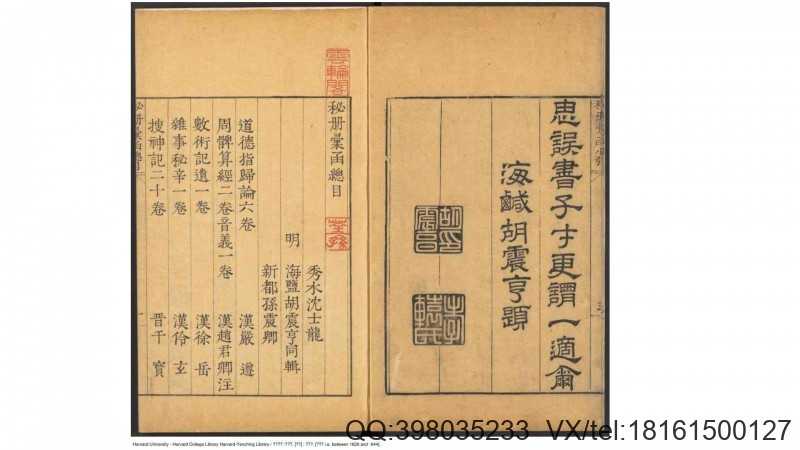 思誤書子才更謂一適爾
海鹹胡震亨題
雲輪閣
秘册彙函總目
荃孫
秀水沈士龍
明 海鹽胡震亨同輯
新都孫震卿
道德指歸論六卷 漢嚴 遵
周髀算經二卷音義一卷 漢趙君卿注
數術記遺一卷 漢徐 岳
雜事秘辛一卷 漢伶 玄
搜神記二十卷 晋干 寶
QQ:398035233 VX/tel:18161500127
Harvard University - Harvard College Library Harvard-Yenching Library